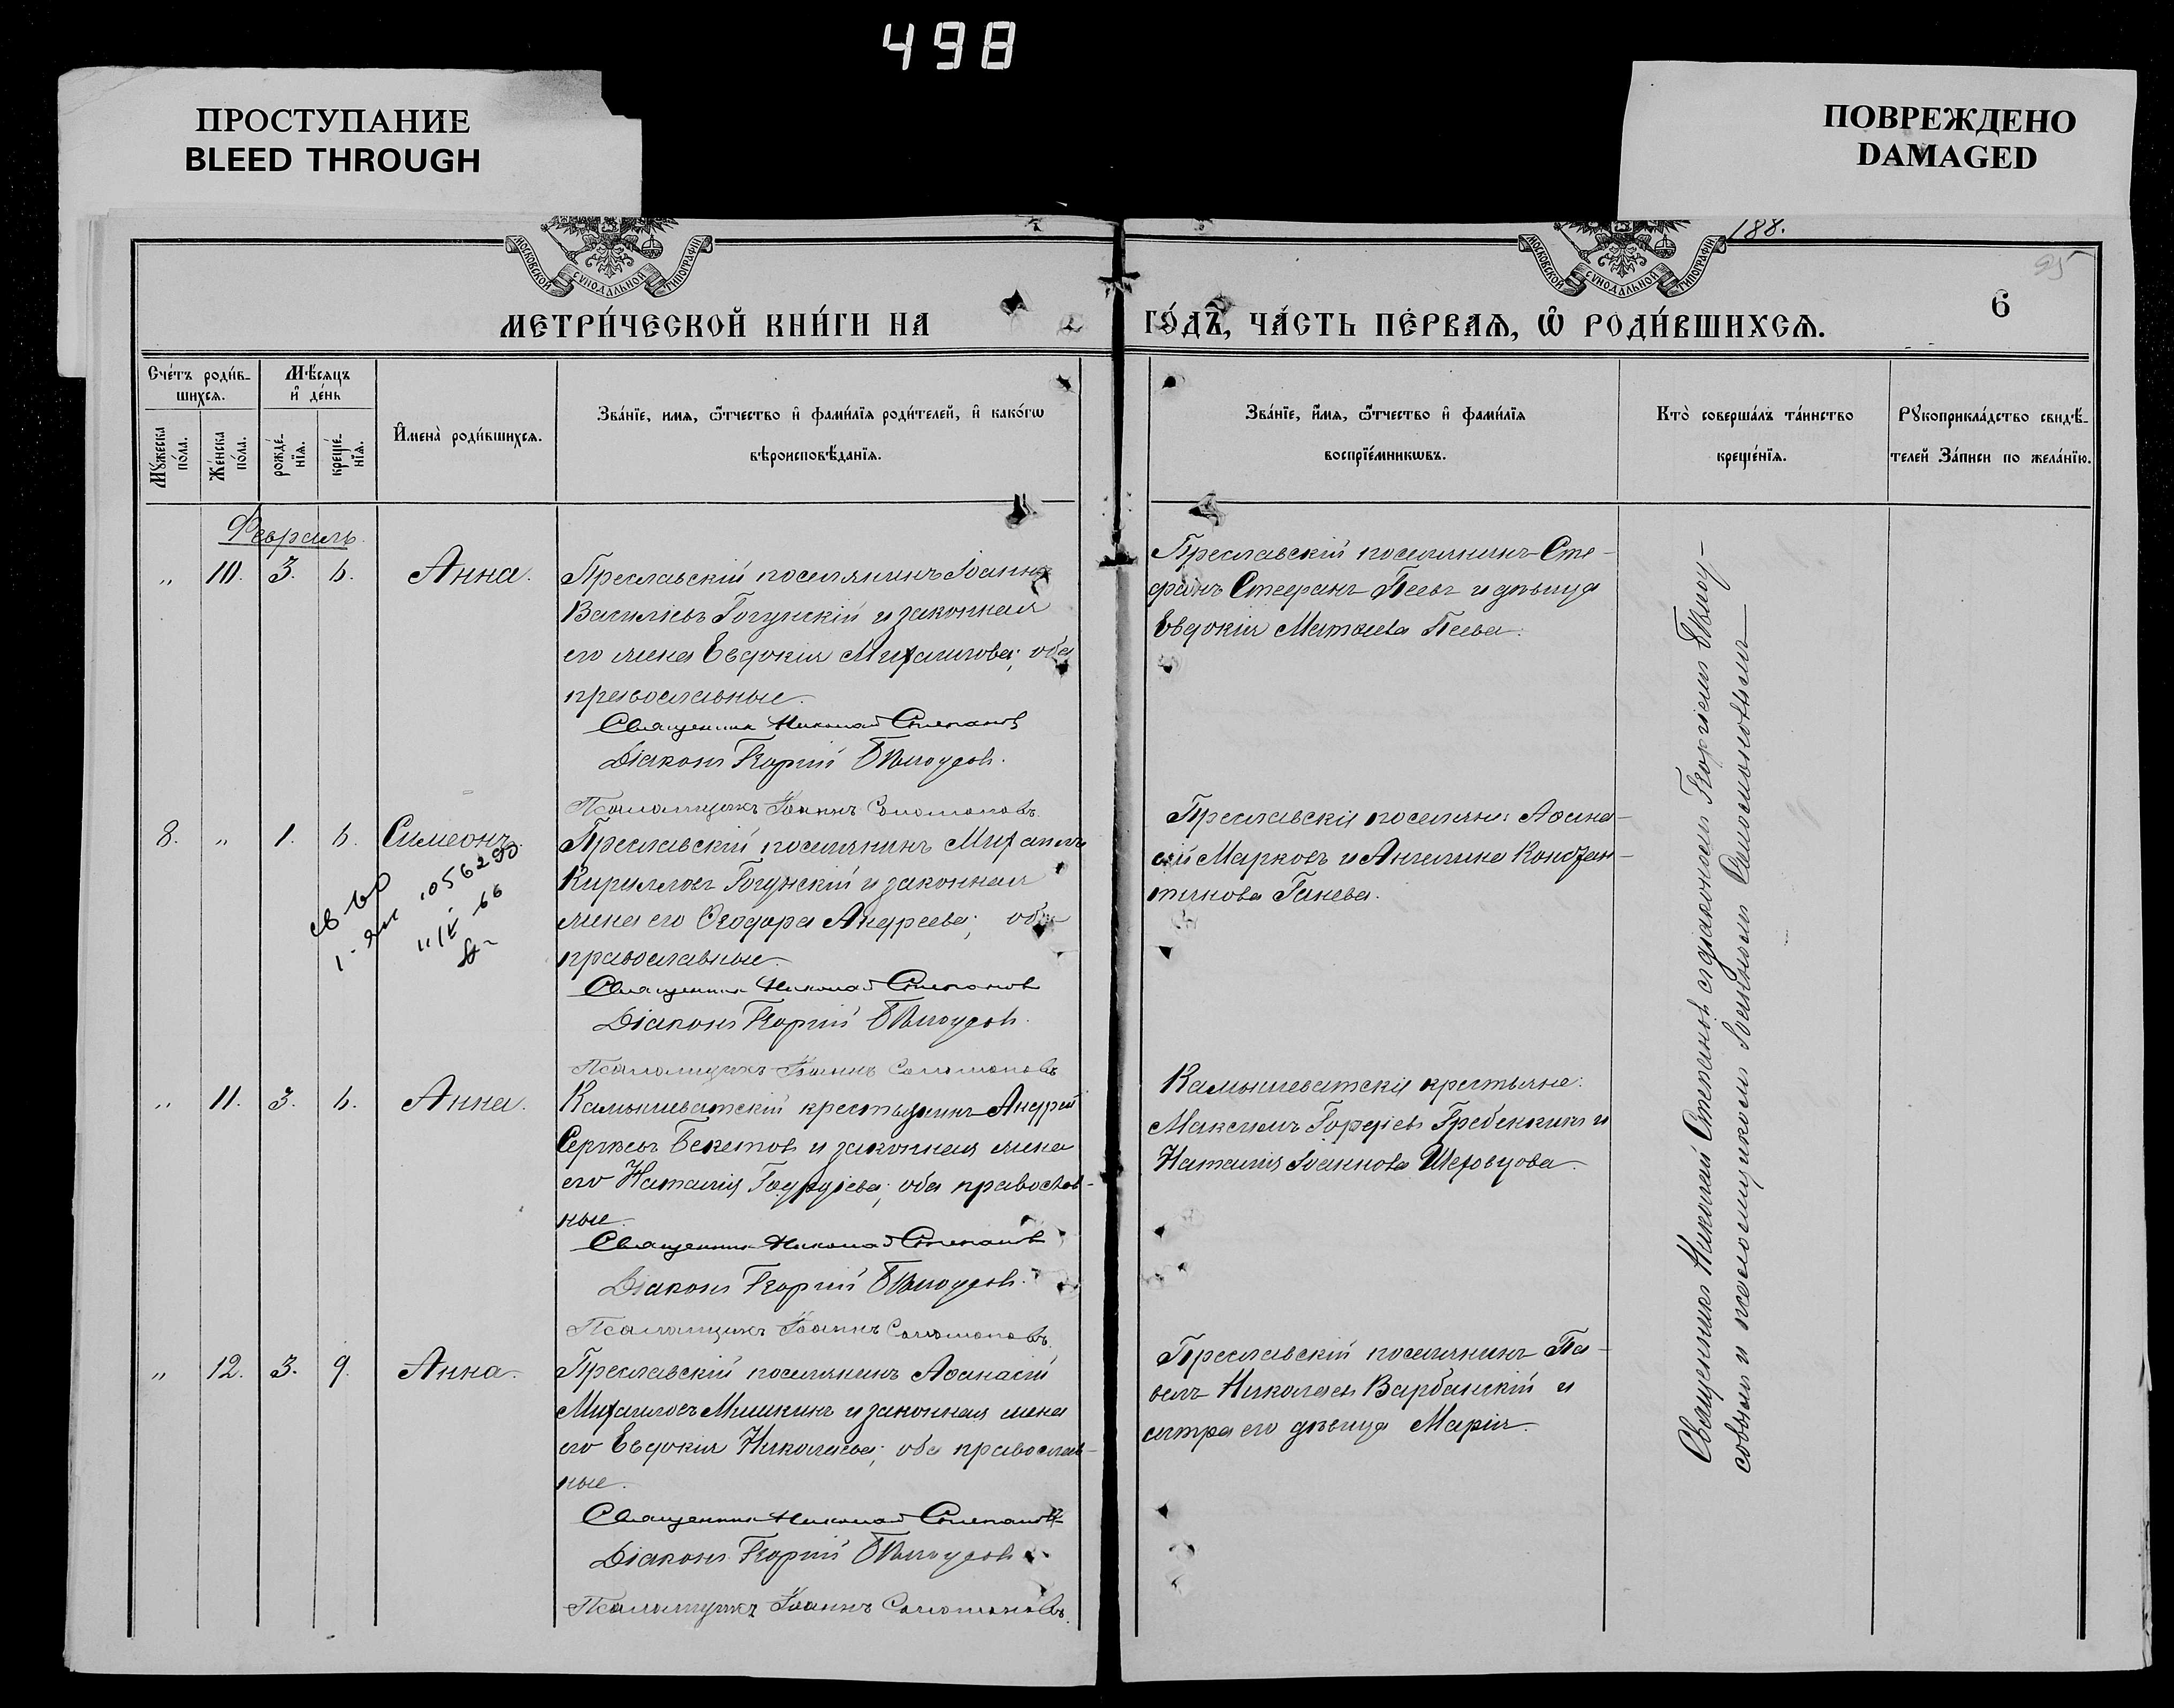 498
ПРОСТУПАНИЕ
BLEED THROUGH
ПОВРЕЖДЕНО
DAMAGED
МОСКОВСКОЙ СУНОДАЛЬНОЙ ТИПОГРАФІИ
МОСКОВСКОЙ СУНОДАЛЬНОЙ ТИПОГРАФІИ
188.
95
6
МЕТРИ́ЧЕСКОЙ КНИ́ГИ НА
ГО́ДЪ, ЧА́СТЬ ПЕ́РВАЯ, Ѿ РОДИ́ВШИХСЯ.
Сче́тъ роди́в-
шихся.
Мꙋ́жеска по́ла.
Же́нска по́ла.
Мѣ́сяцъ
и҆ де́нь
рожде́-
нїя.
креще́-
нїя.
И҆мена̀ роди́вшихся.
Зва́нїе, имя, ѻ҆́тчество и҆ фами́лїя роди́телей, и҆ како́гѡ
вѣроисповѣ́данїя.
Зва́нїе, и҆́мя, ѻ҆́тчество и҆ фами́лїя
воспрїе́мникѡвъ.
Кто̀ соверша́лъ та́инство
креще́нїя.
Рꙋкоприкла́дство свидѣ́-
телей За́писи по жела́нїю.
Февраль.
„ 10. 3. 6. Анна.
Преславскій поселянинъ Іоаннъ
Васильевъ Гогунскій и законная
его жена Евдокія Михаилова; оба
православные.
Священникъ Николай Степановъ
Діаконъ Георгій Бѣлоусовъ.
Псаломщикъ Іоаннъ Соломоновъ.
Преславскій поселянинъ Сте-
фанъ Стефанъ Пеевъ и дѣвица
Евдокія Матѳеева Пеева.
8. „ 1. 6. Симеонъ.
Преславскій поселянинъ Михаилъ
Кирилловъ Гогунскій и законная
жена его Ѳеодора Андреева; оба
православные.
Священникъ Николай Степановъ
Діаконъ Георгій Бѣлоусовъ.
Псаломщикъ Іоаннъ Соломоновъ
Преславскія поселяне: Аѳана-
сій Марковъ и Ангелина Констан-
тинова Ганева.
„ 11. 3. 6. Анна.
Камышеватскій крестьянинъ Андрей
Сергѣевъ Бекетовъ и законная жена
его Наталія Гордіева; оба православ-
ные.
Священникъ Николай Степановъ
Діаконъ Георгій Бѣлоусовъ.
Псаломщикъ Іоаннъ Соломоновъ.
Камышеватскія крестьяне:
Максимъ Гордіевъ Гребенкинъ и
Наталія Іоаннова Шеховцова.
„ 12. 3. 9. Анна.
Преславскій поселянинъ Аѳанасій
Михаиловъ Мишкинъ и законная жена
его Евдокія Николаева; оба православ-
ные.
Священникъ Николай Степановъ
Діаконъ Георгій Бѣлоусовъ
Псаломщикъ Іоаннъ Соломоновъ.
Преславскій поселянинъ Па-
велъ Николаевъ Варбанскій и
сестра его дѣвица Марія.
Священникъ Николай Степановъ съ діакономъ Георгіемъ Бѣлоу-
совымъ и псаломщикомъ Іоанномъ Соломоновымъ